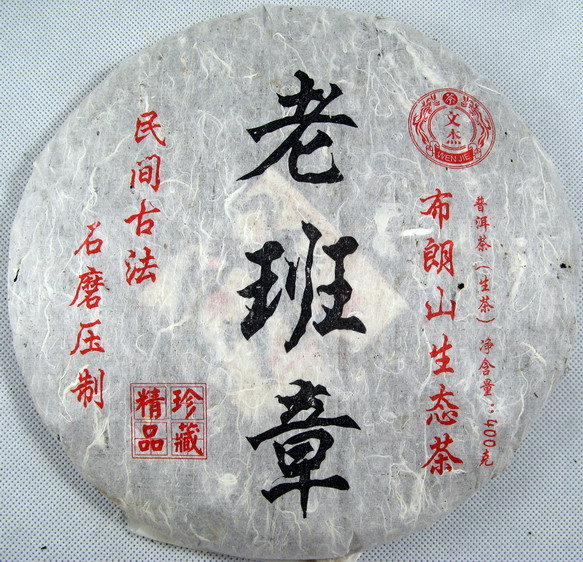 茶
文杰
WEN JIE
普洱茶（生茶）净含量：400克
布朗山生态茶
老班章
民间古法
石磨压制
珍藏
精品